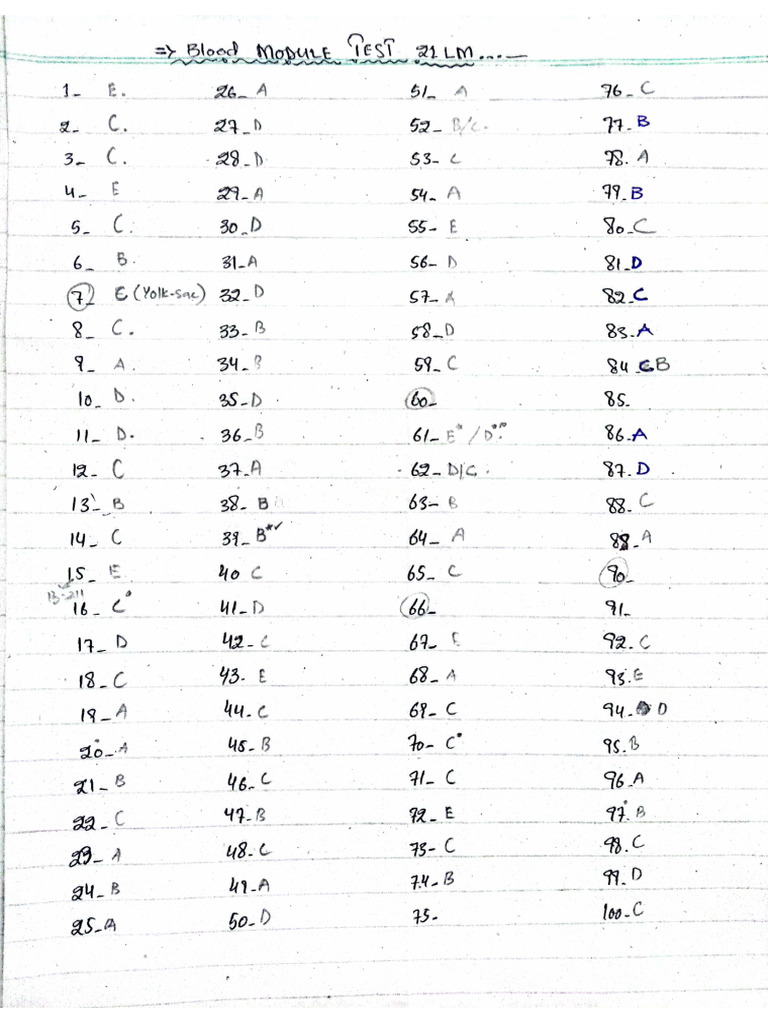 => Blood MODULE TEST 21 LM....—
1_ E. 26_ A 51_ A 76_ C
2_ C. 27_ D 52_ B/C. 77_ B
3_ C. 28_ D 53_ C 78. A
4_ E 29_ A 54_ A 79_ B
5_ C. 30_ D 55_ E 80_ C
6_ B. 31_ A 56_ D 81_ D
7 E (Yolk-sac) 32_ D 57_ A 82_ C
8_ C. 33_ B 58_ D 83_ A
9_ A. 34_ B 59_ C 84 B
10_ D. 35_ D 60_ 85_
11_ D. 36_ B 61_ E* / D** 86_ A
12_ C 37_ A 62_ D/C. 87_ D
13_ B 38_ B 63_ B 88_ C
14_ C 39_ B*✓ 64_ A 89_ A
15_ E 40 C 65_ C 90_
16_ C* 41_ D 66_ 91_
17_ D 42_ C 67_ E 92. C
18_ C 43. E 68_ A 93. E
19_ A 44. C 69_ C 94_ D
20_ A 45_ B 70_ C* 95. B
21_ B 46_ C 71_ C 96_ A
22_ C 47_ B 72_ E 97. B
23_ A 48_ C 73_ C 98. C
24_ B 49_ A 74_ B 99_ D
25_ A 50_ D 75_ 100_ C